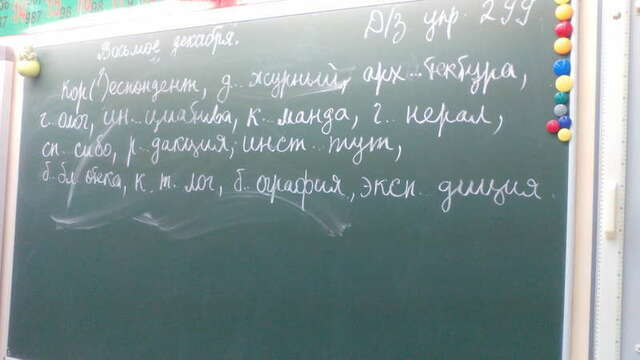 Восьмое декабря.
Д/З упр. 299
Кор(?)еспондент, д..журный, арх..тектура,
г..олог, ин..циатива, к..манда, г..нерал,
сп..сибо, р..дакция, инст..тут,
б..бл..отека, к..т..лог, б..ография, эксп..диция.